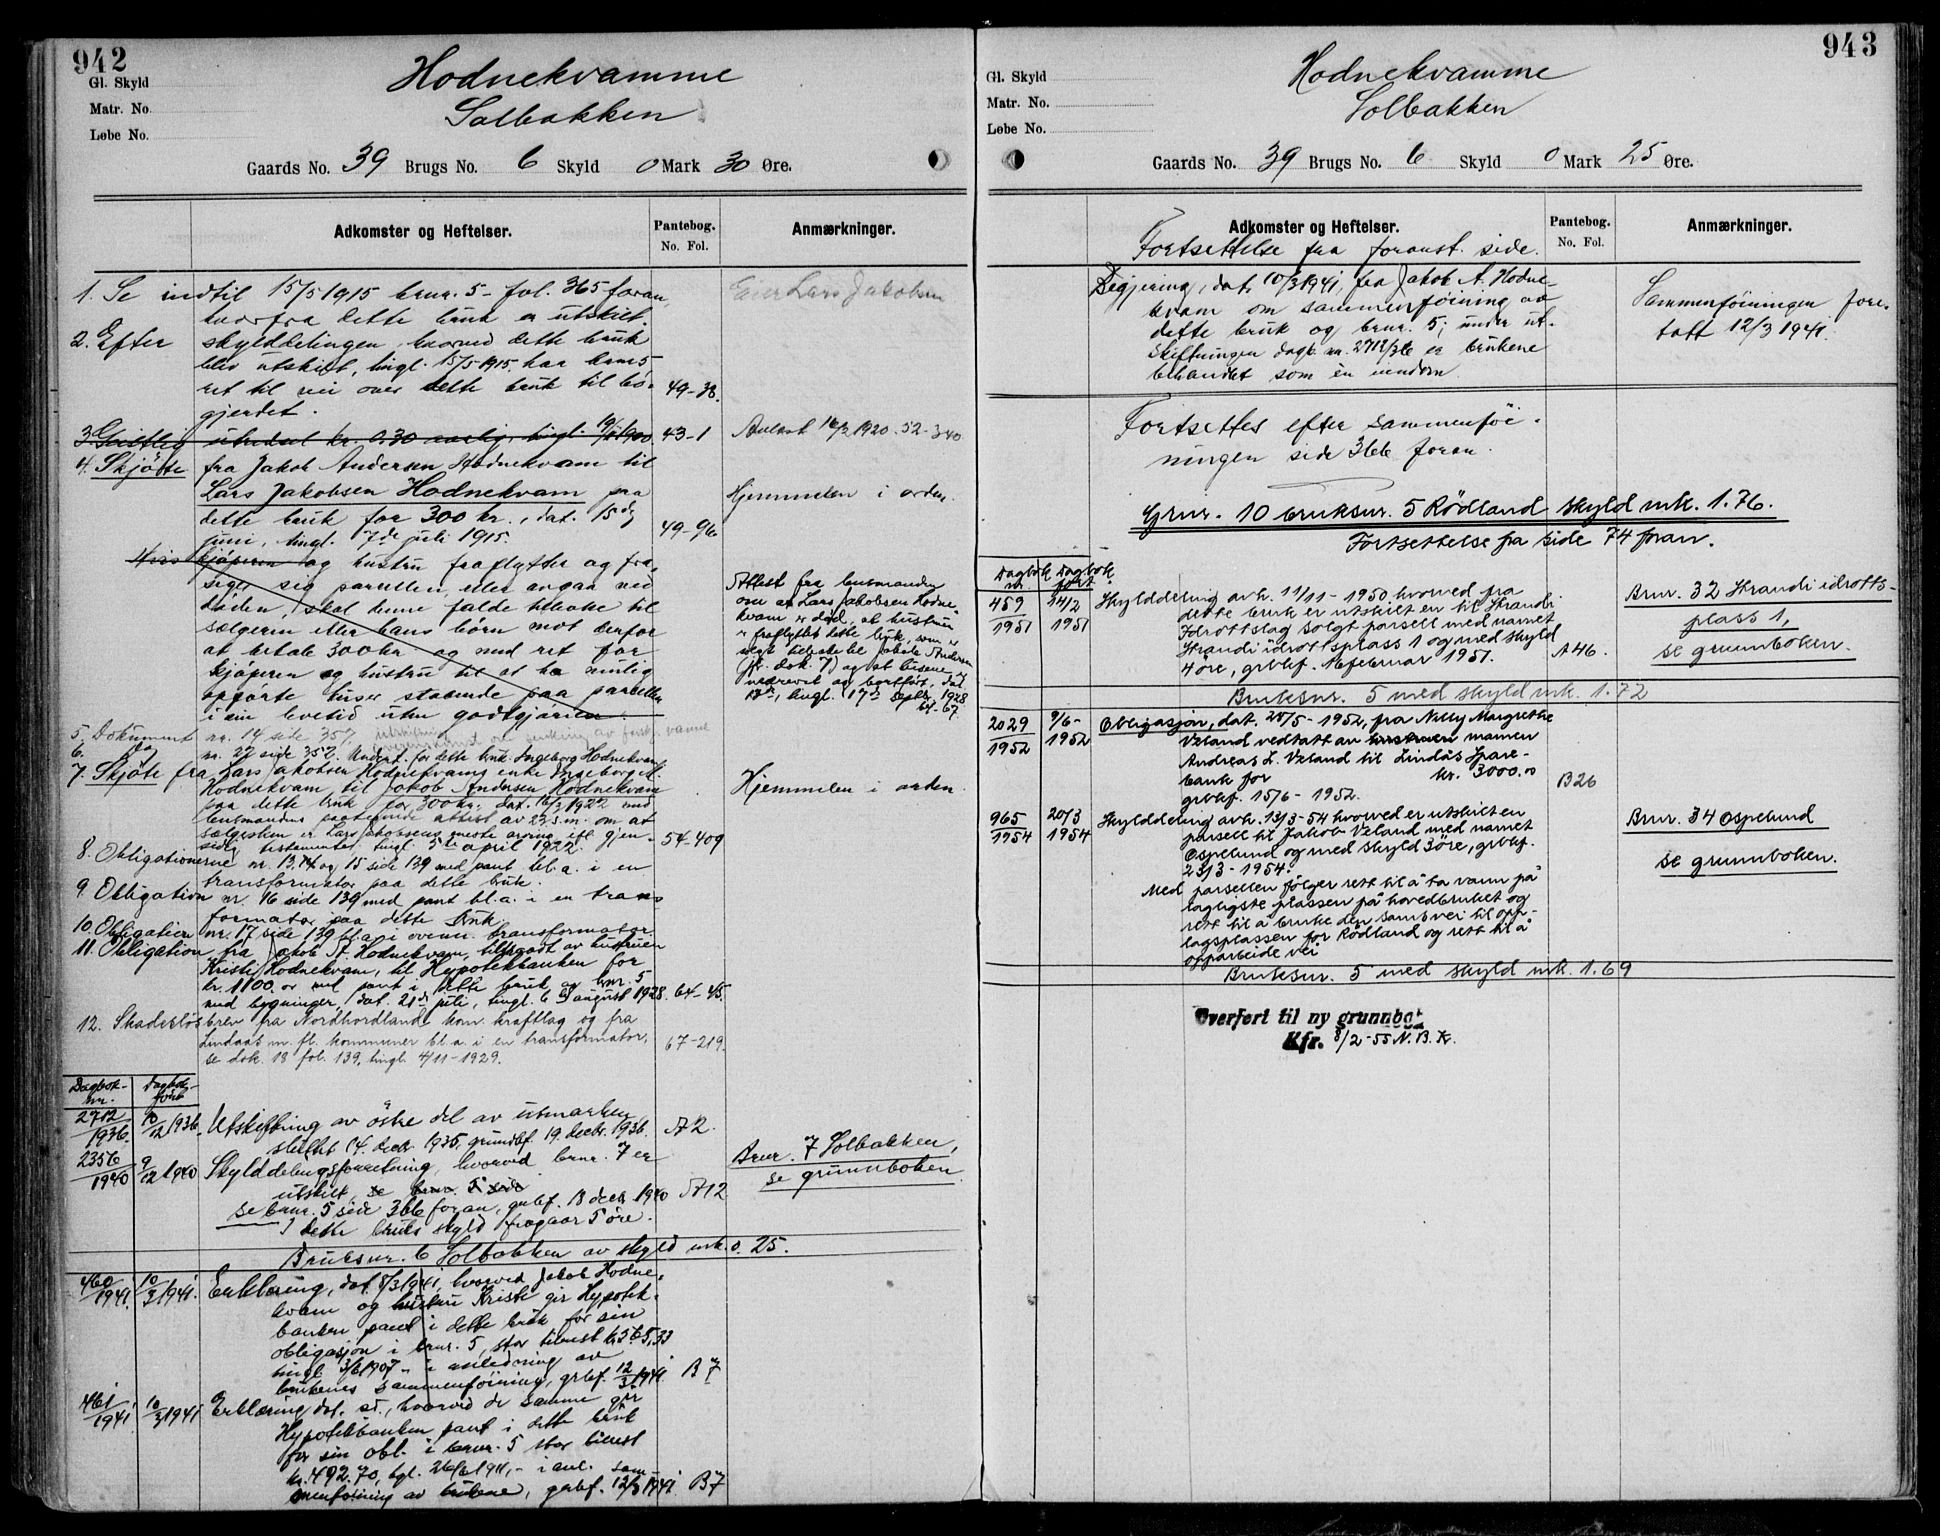 942
Gl. Skyld
Matr. No.
Løbe No.
Hodnekvamme
Solbakken
Gaards No. 39 Brugs No. 6 Skyld 0 Mark 30 Øre.
Adkomster og Heftelser.
Pantebog.
No. Fol.
Anmærkninger.
1. Se indtil 15/5 1915 brnr. 5 - fol. 365 foran,
hvorfra dette bruk er utskilt.
Eier Lars Jakobsen
2. Efter skylddelingen, hvorved dette bruk
blev utskilt, tingl. 15/5 1915, har brnr 5
ret til vei over dette bruk til bø-
gjerdet.
49-38.
3. Geistlig utredsel kr. 0.30 aarlig, tingl. 1900
43-1
Avløst 1920. 52-340
4. Skjøte fra Jakob Andersen Hodnekvam til
Lars Jakobsen Hodnekvam paa
dette bruk for 300 kr., dat. 15de
juni, tingl. 7de juli 1915.
49-96
Hjemmelen i orden.
Hvis kjøperen og hustru fraflytter og fra-
siger sig parsellen eller avgaa ved
døden, skal denne falde tilbake til
sælgeren eller hans børn mot derfor
at betale 300 kr og med ret for
kjøperen og hustru til at ha mulig
opførte huser staaende paa parsellen
i sin levetid uten godtgjørelse.
Attest fra lensmanden
om at Lars Jakobsen Hodne-
kvam er død, at hustruen
er fraflyttet dette bruk, som er
solgt tilbake til Jakob Andersen
(jfr. dok. 7) og at husene er
nedrevet og bortført, dat
tingl. 17de septbr. 1928
64-67.
5. Dokument nr. 14 side 357,
6. do nr. 27 side 357. Undert. for dette bruk Ingeborg Hodnekvam
7. Skjøte fra Lars Jakobsen Hodnekvams enke Ingeborg A.
Hodnekvam til Jakob Andersen Hodnekvam
paa dette bruk for 300 kr. dat. 1922 med
lensmandens paategnede attest av 23 s.m. om at
sælgersken er Lars Jakobsens eneste arving ifl. gjen-
sidig testamente, tingl. 5te april 1922.
54-409
Hjemmelen i orden.
8. Obligationerne nr. 13, 14 og 15 side 139 med pant bl.a. i en
transformator paa dette bruk.
9. Obligation nr. 16 side 139 med pant bl.a. i en trans
formator paa dette bruk.
10. Obligation nr. 17 side 139 bl.a. i ovenn. transformator.
11. Obligation fra Jakob A. Hodnekvam, vedtaat av hustruen
Kristi Hodnekvam, til Hypotekbanken for
kr. 1100.00 med pant i dette bruk og brnr. 5
med bygninger, dat. 21de juli, tingl. 6te august 1928.
64-45.
12. Skadesløsbrev fra Nordhordland kom. kraftlag og fra
Lindaas m. fl. kommuner bl.a. i en transformator,
se dok. 18 fol. 139, tingl. 4/11-1929.
67-219.
Dagbok-
nr.
Dagbok-
ført
2712
1936
10/12 1936.
Utskiftning av østre del av utmarken,
sluttet 14. decbr. 1935, grunnbf. 19. decbr. 1936.
A 2.
2356
1940
9/12 1940
Skylddelingsforretning, hvorved brnr. 7 er
utskilt, se brnr. 5 side
se brnr. 5 side 366 foran, grbf. 18 decbr 1940
I dette bruks skyld fragaar 5 øre.
A 12
Brnr. 7 Solbakken,
se grunnboken
Bruksnr. 6 Solbakken av skyld mrk. 0.25.
460
1941
10/3 1941.
Erklæring, dat. 8/3 1941, hvorved Jakob Hodne-
kvam og hustru Kristi gir Hypotek-
banken pant i dette bruk for sin
obligasjon i brnr. 5, stor tilrest kr 565,33
tingl 3/6 1907 - i anledning av
brukenes sammenføining, grbf. 12/3 1941.
B 7
461
1941
10/3 1941
Erklæring, dat. s.d., hvorved de samme gir
Hypotekbanken pant i dette bruk
for sin obl. i brnr. 5 stor tilrest
kr. 492.70, tgl. 1911, - i anl. sam-
menføining av brukene, grbf. 12/3 1941.
B 7
943
Gl. Skyld
Matr. No.
Løbe No.
Hodnekvamme
Solbakken
Gaards No. 39 Brugs No. 6 Skyld 0 Mark 25 Øre.
Adkomster og Heftelser.
Pantebog.
No. Fol.
Anmærkninger.
Fortsettelse fra foranst. side.
Begjæring, dat. 10/3 1941, fra Jakob A. Hodne-
kvam om sammenføining av
dette bruk og brnr. 5; under ut-
skiftningen dagb. nr. 2712/36 er brukene
behandlet som en eiendom.
Sammenføiningen fore-
tatt 12/3 1941.
Fortsettes efter sammenføi-
ningen side 366 foran.
Grnr. 10 bruksnr. 5 Rødland skyld mk. 1.76.
Fortsettelse fra side 74 foran.
Dagbok
nr.
Dagbok
ført
459
1951
14/2
1951
Skylddeling avh. 11/11 - 1950 hvorved fra
dette bruk er utskilt en til Strandi
Idrottslag solgt parsell med namet
Strandi idrottsplass 1 og med skyld
4 øre, grbkf. 16 februar 1951.
A 46.
Brnr. 32 Strandi idrotts-
plass 1,
se grunnboken.
Bruksnr. 5 med skyld mk. 1.72
2029
1952
9/6-
1952
Obligasjon, dat. 20/5 - 1952, fra Nelly Margrethe
Veland vedtatt av mannen
Andreas L. Veland til Lindås Spare-
bank for kr. 3000.00
grbkf. 15/6 - 1952.
B 26
965
1954
20/3
1954
Skylddeling avh. 13/3-54 hvorved er utskilt en
parsell til Jakob Veland med namet
Ospelund og med skyld 3 øre, grbkf.
23/3 - 1954.
Med parsellen følger rett til å ta vann på
lagligste plassen på hovedbruket og
rett til å bruke den sams vei til opp-
lagsplassen for Rødland og rett til å
opparbeide vei
Brnr. 34 Ospelund
se grunnboken.
Bruksnr. 5 med skyld mk. 1.69
Overført til ny grunnbok
Kfr. 8/2-55 N. B. K.